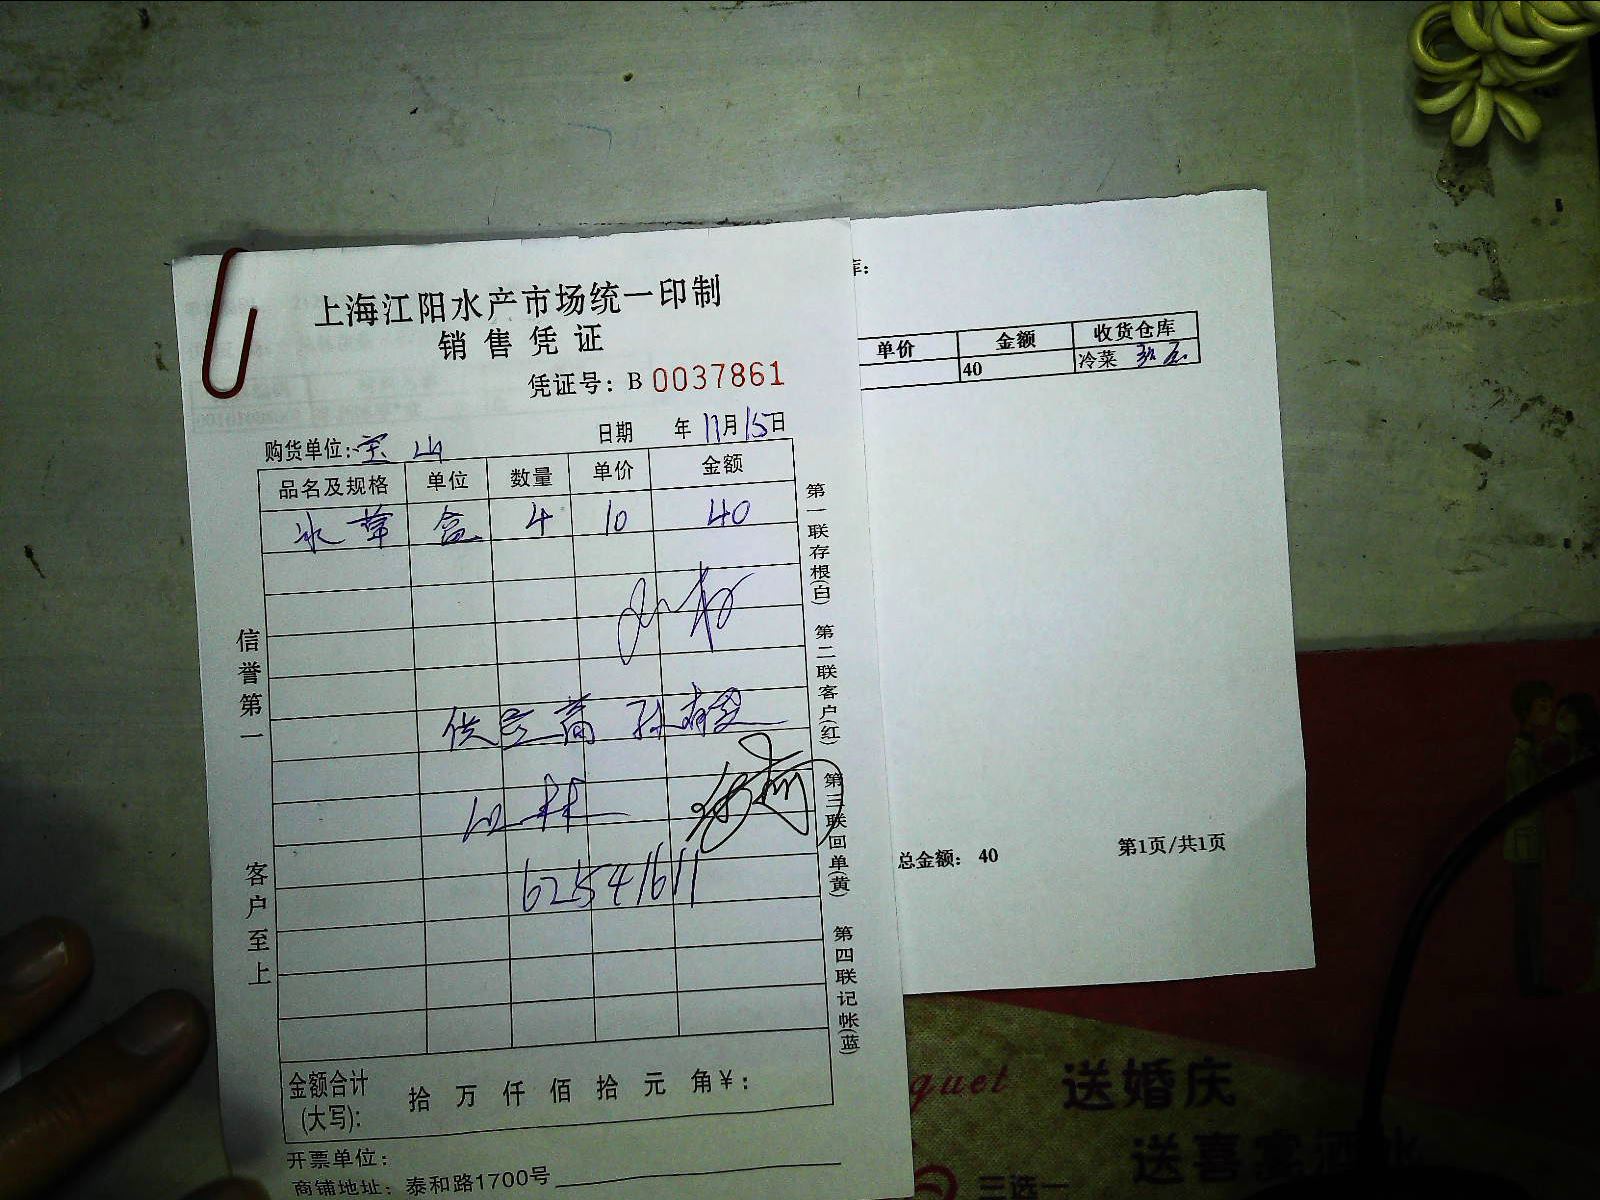 上海江阳水产市场统一印制
销售凭证
凭证号: B 0037861
购货单位: 宝山 日期 年 11月15日
品名及规格 单位 数量 单价 金额
冰草 盒 4 10 40
供应商
62541611
金额合计(大写): 拾 万 仟 佰 拾 元 角 ¥:
开票单位:
商铺地址: 泰和路1700号
信誉第一
客户至上
第一联存根(白) 第二联客户(红) 第三联回单(黄) 第四联记帐(蓝)
库:
单价 金额 收货仓库
40 冷菜
总金额: 40 第1页/共1页
quet 送婚庆
送喜宴酒水
三选一